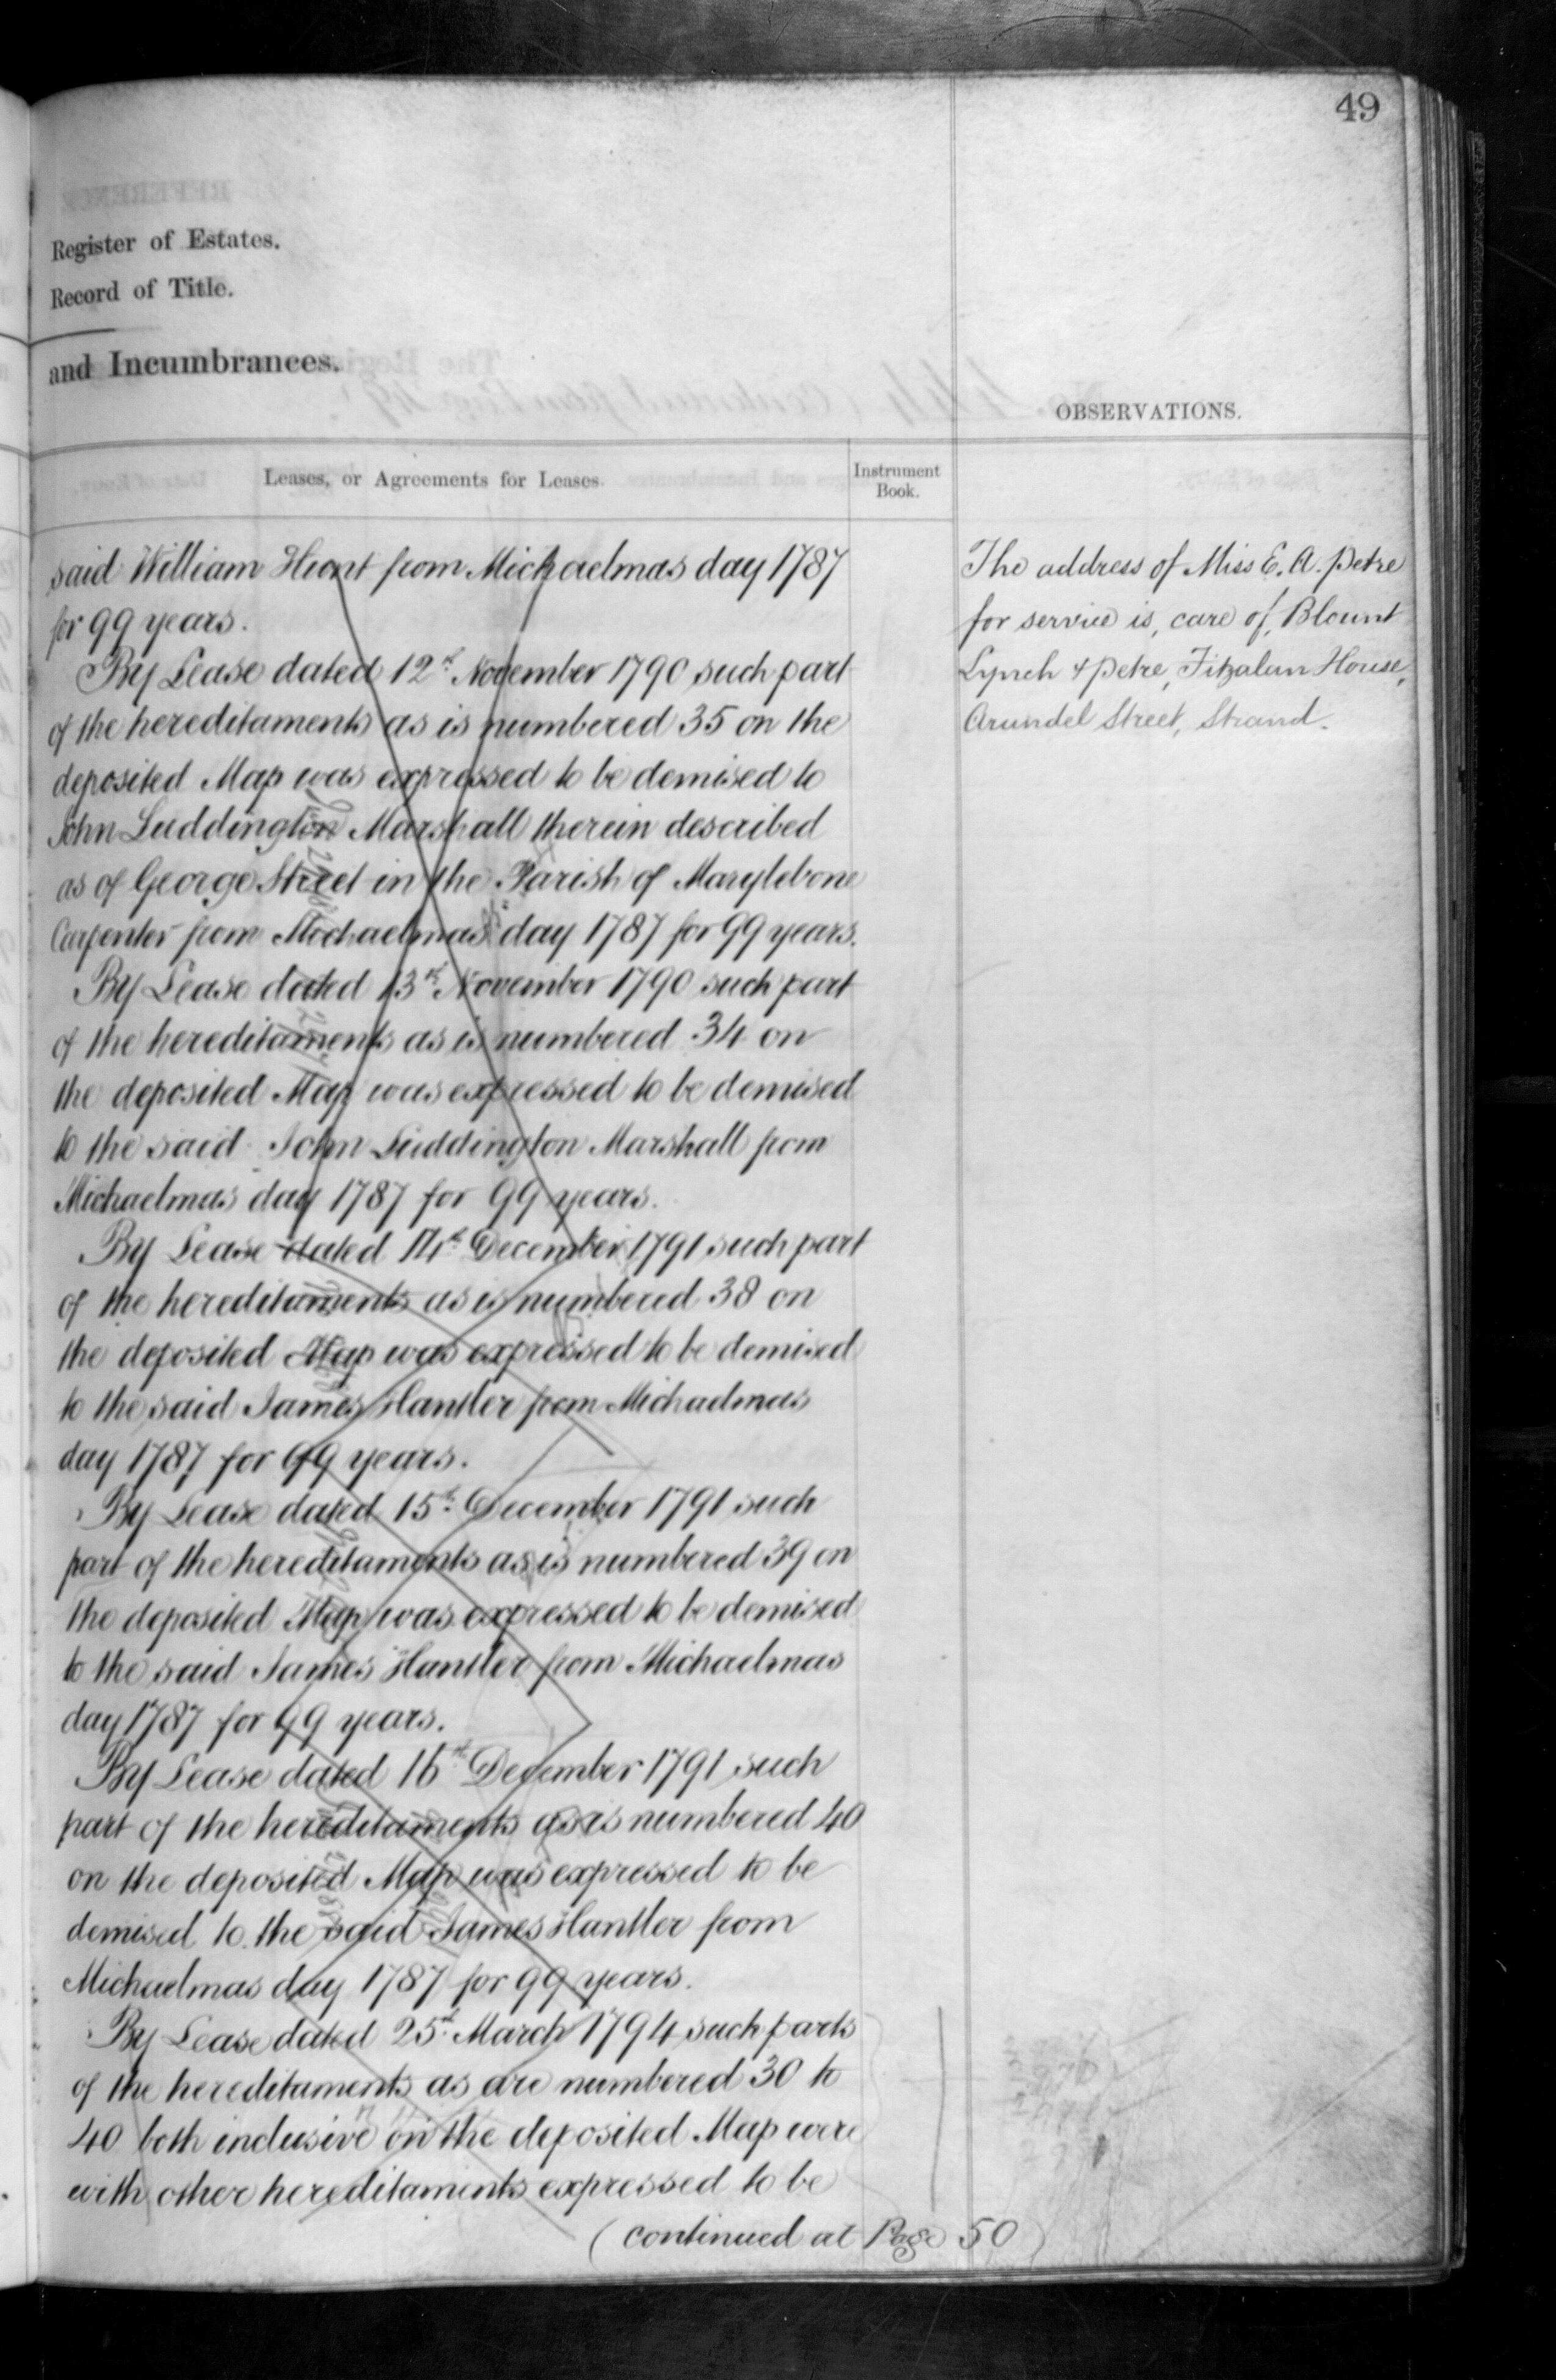 49
Register of Estates.
Record of Title.
and Incumbrances.
OBSERVATIONS.
Leases, or Agreements for Leases.
Instrument
Book.
said William Hunt from Michaelmas day 1787
for 99 years.
By Lease dated 12th November 1790 such part
of the hereditaments as is numbered 35 on the
deposited Map was expressed to be demised to
John Luddington Marshall therein described
as of George Street in the Parish of Marylebone
Carpenter from Michaelmas day 1787 for 99 years.
By Lease dated 13th November 1790 such part
of the hereditaments as is numbered 34 on
the deposited Map was expressed to be demised
to the said John Luddington Marshall from
Michaelmas day 1787 for 99 years.
By Lease dated 14th December 1791 such part
of the hereditaments as is numbered 38 on
the deposited Map was expressed to be demised
to the said James Hantler from Michaelmas
day 1787 for 99 years.
By Lease dated 15th December 1791 such
part of the hereditaments as is numbered 39 on
the deposited Map was expressed to be demised
to the said James Hantler from Michaelmas
day 1787 for 99 years.
By Lease dated 16th December 1791 such
part of the hereditaments as is numbered 40
on the deposited Map was expressed to be
demised to the said James Hantler from
Michaelmas day 1787 for 99 years.
By Lease dated 25th March 1794 such parts
of the hereditaments as are numbered 30 to
40 both inclusive on the deposited Map were
with other hereditaments expressed to be
(continued at Page 50)
The address of Miss E. A. Petre
for service is, care of, Blount
Lynch & Petre, Fitzalan House,
Arundel Street, Strand.